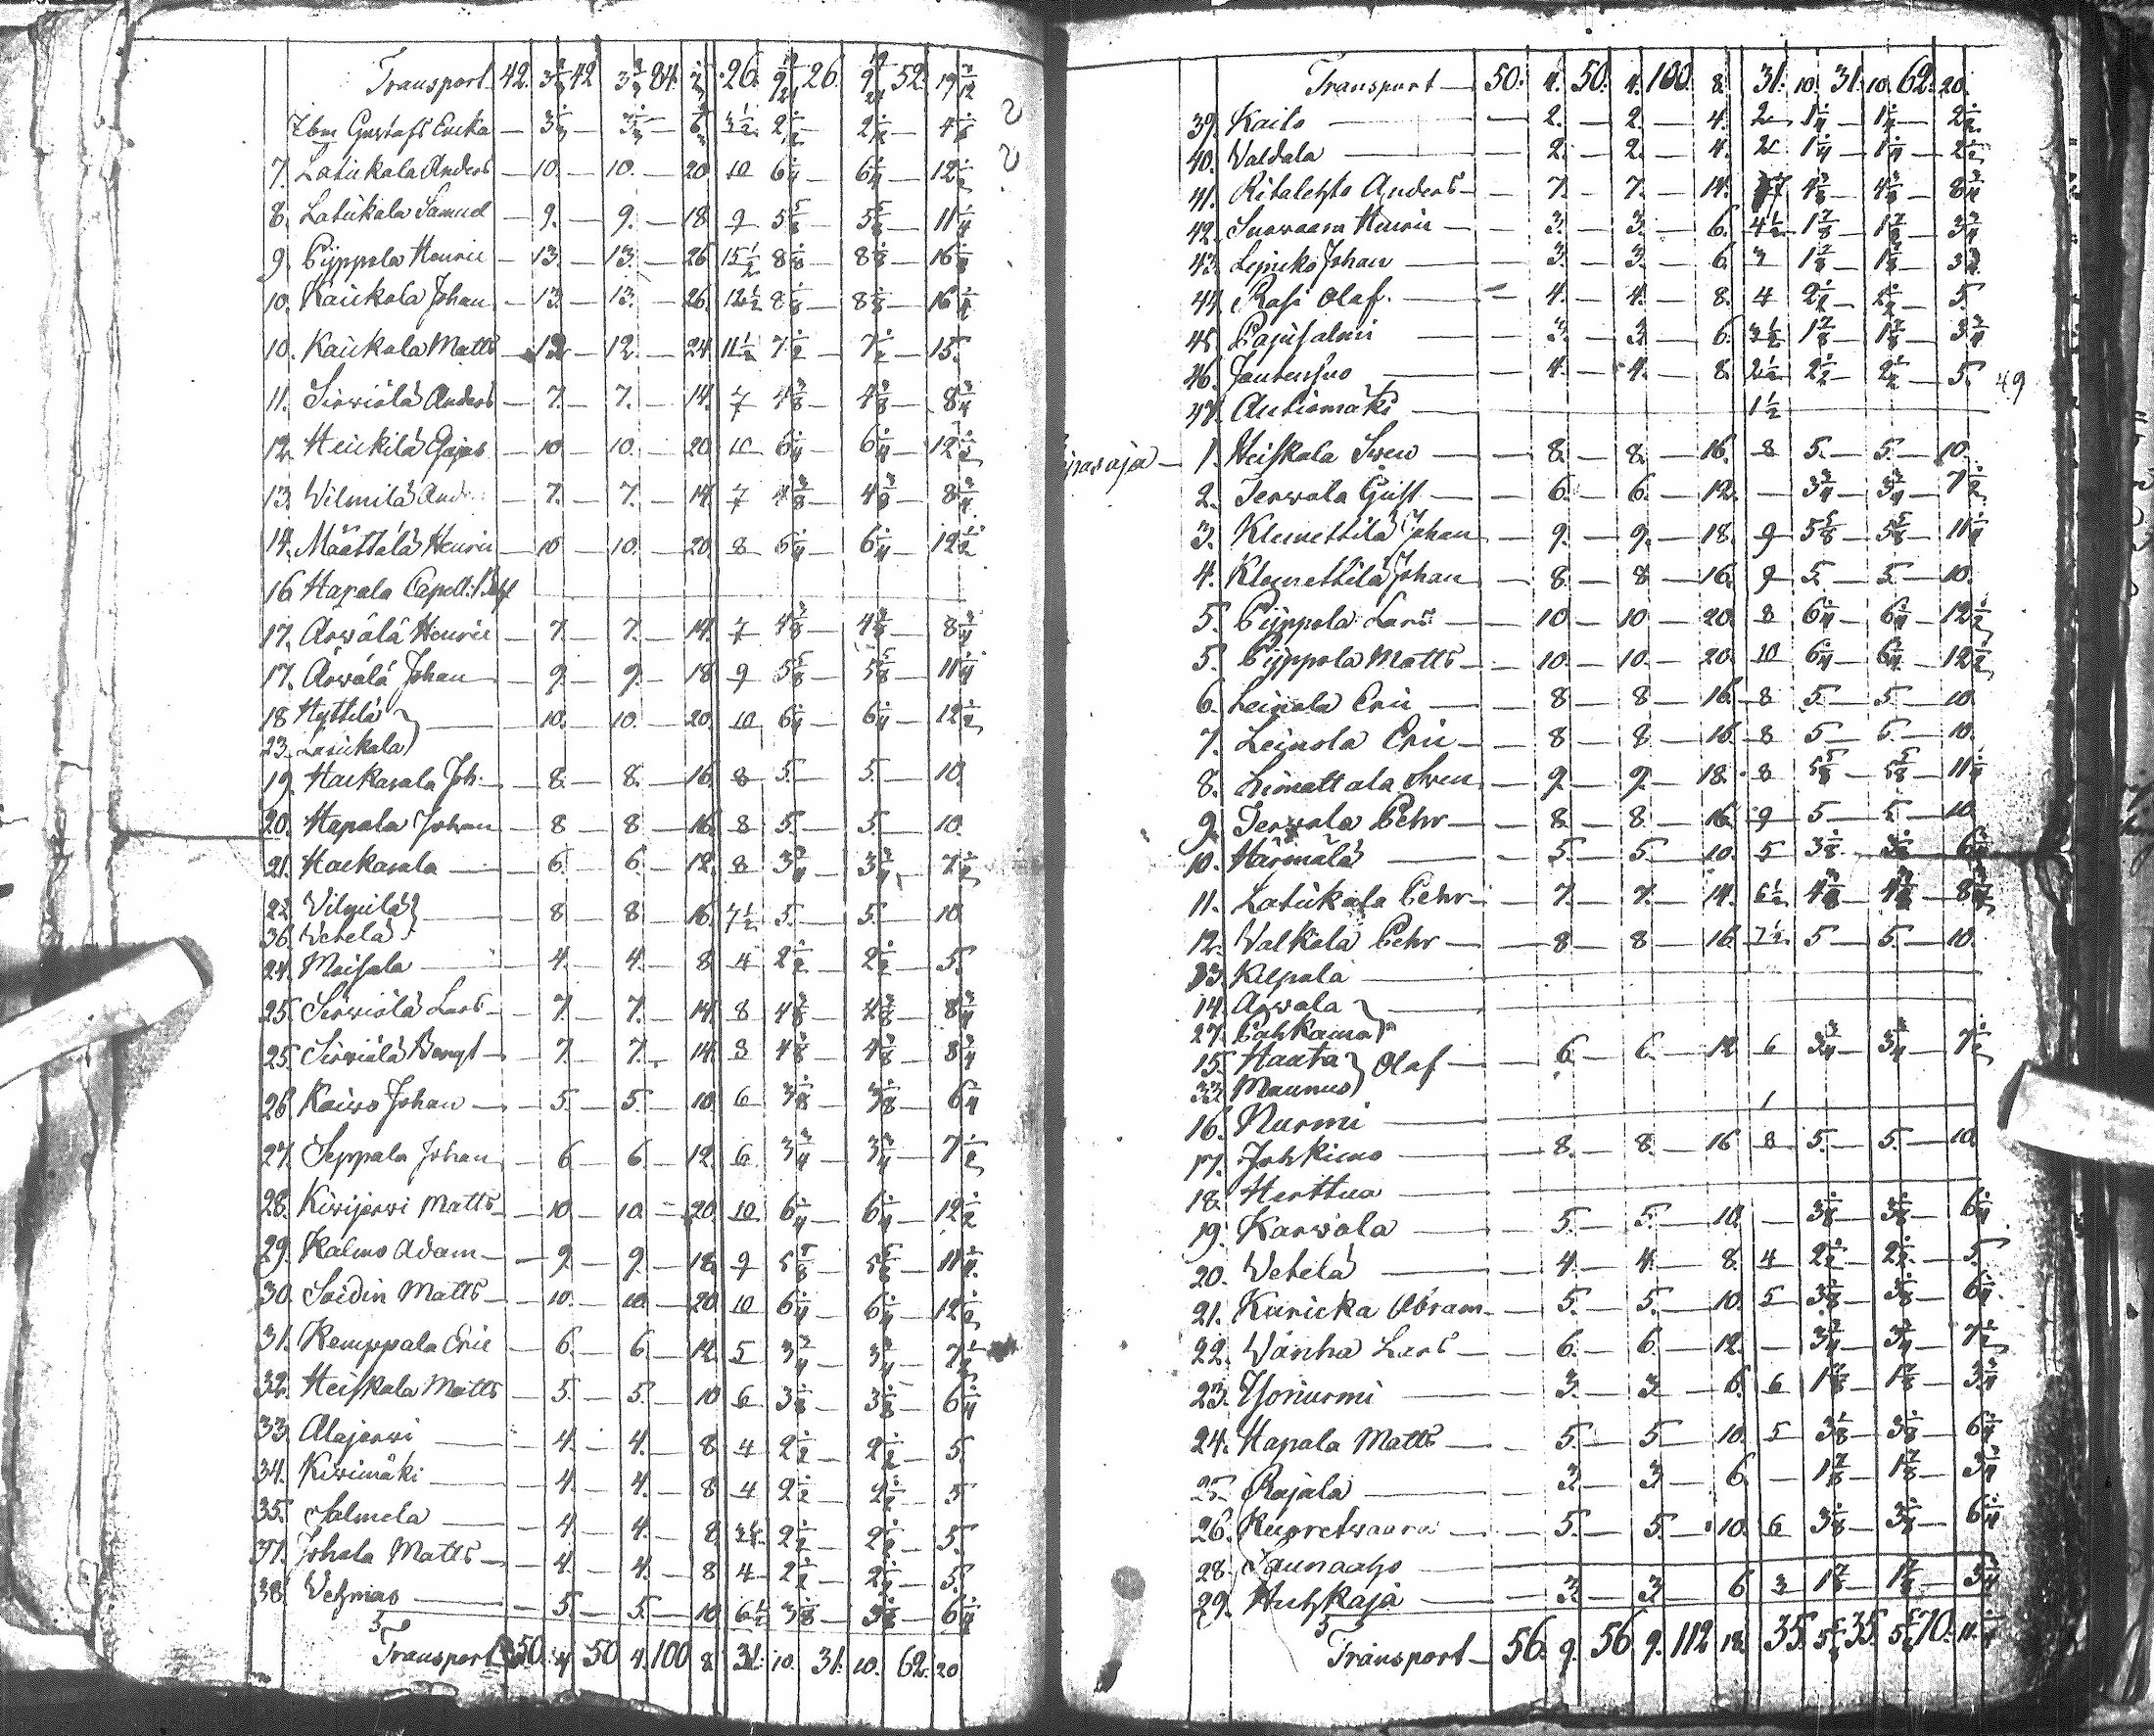 Transport 42. 42 84. 26. 26. 52. 19 7/12
Enka — 3 1/3 — 3 1/3 — 6 2/3 3 1/2 — 4 1/6
7. Latukala Anders — 10. — 10. — 20 10 6 1/4 — 6 1/4 — 12 1/2
8. Latukala Samuel — 9. — 9. — 18 9 5 5/8 — 5 5/8 — 11 1/4
9. Pyppola Henric — 13. — 13. — 26 15 1/2 8 1/8 — 8 1/8 — 16 1/4
10. Kaukola Johan — 13. — 13. — 26. 12 1/2 8 1/8 — 8 1/8 — 16 1/4
10. Kaukola Matts — 12 — 12. — 24 11 1/2 7 1/2 — 7 1/2 — 15.
11. Sirviölä Anders — 7. — 7. — 14. 7 4 3/8 — 4 3/8 — 8 3/4
12. Heikilä — 10 — 10. — 20 10 6 1/4 — 6 1/4 — 12 1/2
13. Wilmilä And — 7. — 7. — 14. 7 4 3/8 — 4 3/8 — 8 3/4
14. Määttälä Henric — 10 — 10. — 20. 8 6 1/4 — 6 1/4 — 12 1/2
16 Hapala Capell.
17. Arwälä Henric — 7. — 7. — 14. 7 4 3/8 — 4 3/8 — 8 3/4
17. Arwälä Johan — 9. — 9. — 18 9 5 5/8 — 5 5/8 — 11 1/4
18 Hyttilä } — 10. — 10. — 20. 10 6 1/4 — 6 1/4 — 12 1/2
23. Lasukala
19. Haekarala Joh. — 8. — 8. — 16. 8 5. — 5. — 10.
20. Hapala Johan — 8 — 8. — 16. 8 5. — 5. — 10.
21. Haekarala — 6. — 6. — 12. 8 3 3/4 — 3 3/4 — 7 1/2
22. Vilmilä } — 8 — 8 — 16. 7 1/2 5. — 5. — 10
36. Wetelä
24. Moisala — 4. — 4. — 8 4 2 1/2 — 2 1/2 — 5.
25. Sirwiölä Lars — 7. — 7. — 14 8 4 3/8 — 4 3/8 — 8 3/4
25. Sirwiölä Bengt — 7. — 7. — 14. 8 4 3/8 — 4 3/8 — 8 3/4
26. Kaiwo Johan — 5. — 5. — 10. 6 3 1/8 — 3 1/8 — 6 1/4
27. Seppala Johan — 6 — 6 — 12. 6 3 3/4 — 3 3/4 — 7 1/2
28. Kiwijerwi Matts — 10 — 10. — 20 10 6 1/4 — 6 1/4 — 12 1/2
29. Kalmo Adam — 9. — 9. — 18. 9 5 5/8 — 5 5/8 — 11 1/4
30. Soidin Matts — 10. — 10. — 20 10 6 1/4 — 6 1/4 — 12 1/2
31. Kemppala Eric — 6. — 6. — 12. 5 3 3/4 — 3 3/4 — 7 1/2
32. Heiskala Matts — 5. — 5. — 10 6 3 1/8 — 3 1/8 — 6 1/4
33. Alajerwi — 4. — 4. — 8 4 2 1/2 — 2 1/2 — 5
34. Kivimäki — 4. — 4. — 8 4 2 1/2 — 2 1/2 — 5
35. Salmela — 4. — 4. — 8. 2 1/2 — 2 1/2 — 5.
37. Johola Matts — 4. — 4. — 8 4 2 1/2 — 2 1/2 — 5.
38. Vehmas — 5. — 5. — 10 6 1/2 3 1/8 — 3 1/8 — 6 1/4
Transport 50. 4 50 4. 100 8 31. 10. 31. 10. 62. 20
Transport — 50. 4. 50. 4. 100. 8. 31. 10. 31. 10. 62. 20.
39. Kailo — 2. — 2. — 4. 2 1 1/4 — 1 1/4 — 2 1/2
40. Valdala — 2. — 2. — 4. 2 1 1/4 — 1 1/4 — 2 1/2
41. Ritalehto Anders — 7. — 7. — 14. 7 4 3/8 — 4 3/8 — 8 3/4
42. Henric — 3. — 3. — 6. 4 1/2 1 7/8 — 1 7/8 — 3 3/4
43. Johan — 3. — 3. — 6. 3 1 7/8 — 1 7/8 — 3 3/4
44. Rasi Olaf. — 4. — 4. — 8. 4 2 1/2 — 2 1/2 — 5.
45 Pajusalmi — 3. — 3 — 6. 3 1/2 1 7/8 — 1 7/8 — 3 3/4
46. Joutensuo — 4. — 4. — 8. 2 1/2 2 1/2 — 2 1/2 — 5. 49
47. Autiomäki — 1 1/2
1. Heiskala Swen — 8. — 8. — 16. 8 5. — 5. — 10.
2. Terwola Gust — 6. — 6. — 12. — 3 3/4 — 3 3/4 — 7 1/2
3. Klemettilä Johan — 9. — 9. — 18. 9 5 5/8 — 5 5/8 — 11 1/4
4. Klemettilä Johan — 8. — 8 — 16. 9 5. — 5. — 10.
5. Pyppola Lars — 10 — 10 — 20 8 6 1/4 — 6 1/4 — 12 1/2
5. Pyppola Matts — 10. — 10. — 20. 10 6 1/4 — 6 1/4 — 12 1/2
6. Leinola Eric — 8 — 8 — 16. 8 5. — 5. — 10
7. Leinola Eric — 8 — 8 — 16 8 5 — 5. — 10.
8. Limattala Swen — 9. — 9. — 18. 8 5 5/8 — 5 5/8 — 11 1/4
9. Terwola Pehr — 8. — 8. — 16. 9 5 — 5. — 10
10. Härmälä — 5. — 5. — 10. 5 3 1/8 — 3 1/8 — 6 1/4
11. Latukala Pehr — 7. — 7. — 14. 6 1/2 4 3/8 — 4 3/8 — 8 3/4
12. Valkola Pehr — 8 — 8 — 16. 7 1/2 5 — 5. — 10.
13. Kilpala
14. Arwola }
27. Pahkama
15. Haata } Olaf — 6. — 6. — 12 6 3 3/4 — 3 3/4 — 7 1/2
33 Maunus
16. Nurmi — 1
17. Johkimo — 8. — 8. — 16 8 5. — 5. — 10
18. Herttua
19. Karwola — 5. — 5. — 10. — 3 1/8 — 3 1/8 — 6 1/4
20. Wetelä — 4. — 4. — 8. 4 2 1/2 — 2 1/2 — 5.
21. Kuricka Abram — 5. — 5. — 10. 5 3 1/8 — 3 1/8 — 6 1/4
22. Wanha Lars — 6. — 6. — 12. — 3 3/4 — 3 3/4 — 7 1/2
23. Isonurmi — 3. — 3. — 6. 6 1 7/8 — 1 7/8 — 3 3/4
24. Hapala Matts — 5. — 5 — 10. 5 3 1/8 — 3 1/8 — 6 1/4
25. Rajala — 3 — 3 — 6. — 1 7/8 — 1 7/8 — 3 3/4
26. — 5. — 5. — 10. 6 3 1/8 — 3 1/8 — 6 1/4
28. Saunaaho
29. Huhkaja — 3. — 3 — 6 3 1 7/8 — 1 7/8 — 3 3/4
Transport — 56. 9. 56 9. 112 18. 35. 35. 70. 11.